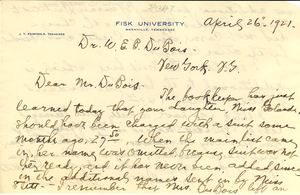 FISK UNIVERSITY
NASHVILLE, TENNESSEE
April 26th, 1921.
Dr. W. E. B. DuBois.
New York. N.Y.
Dear Mr. DuBois.
The bookkeeper has just
learned today that your daughter, Miss Yolande
should have been charged with a suit some
months ago, 27.50. When the main list came
in, her name was omitted because suit was not
then ready, and it has never been added since
in the additional names sent in by Miss
I remember that Mrs. DuBois left an